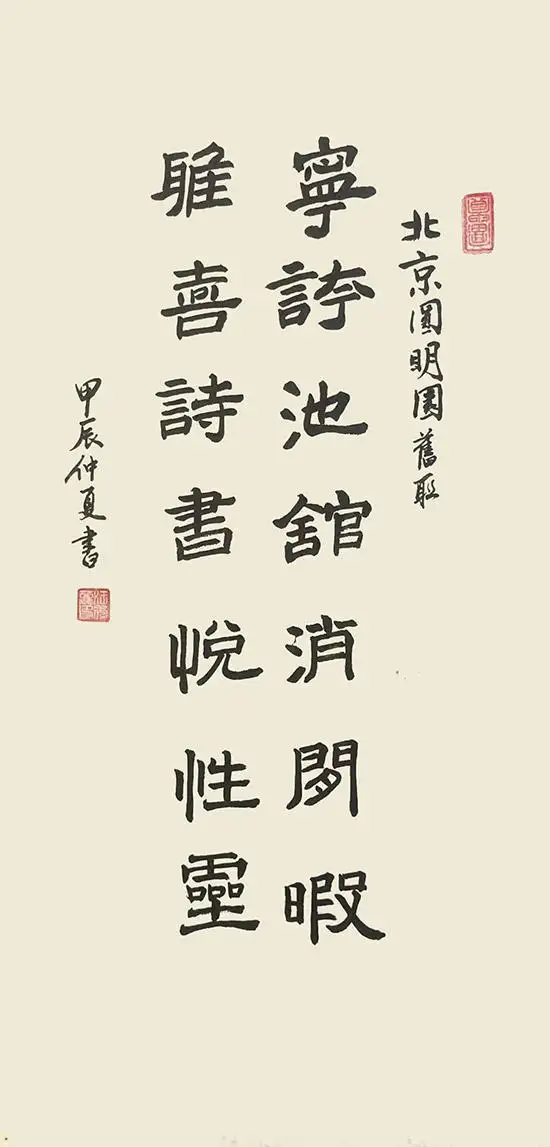 北京圓明園舊聯
寧誇池館消閒暇
雅喜詩書悅性靈
甲辰仲夏書